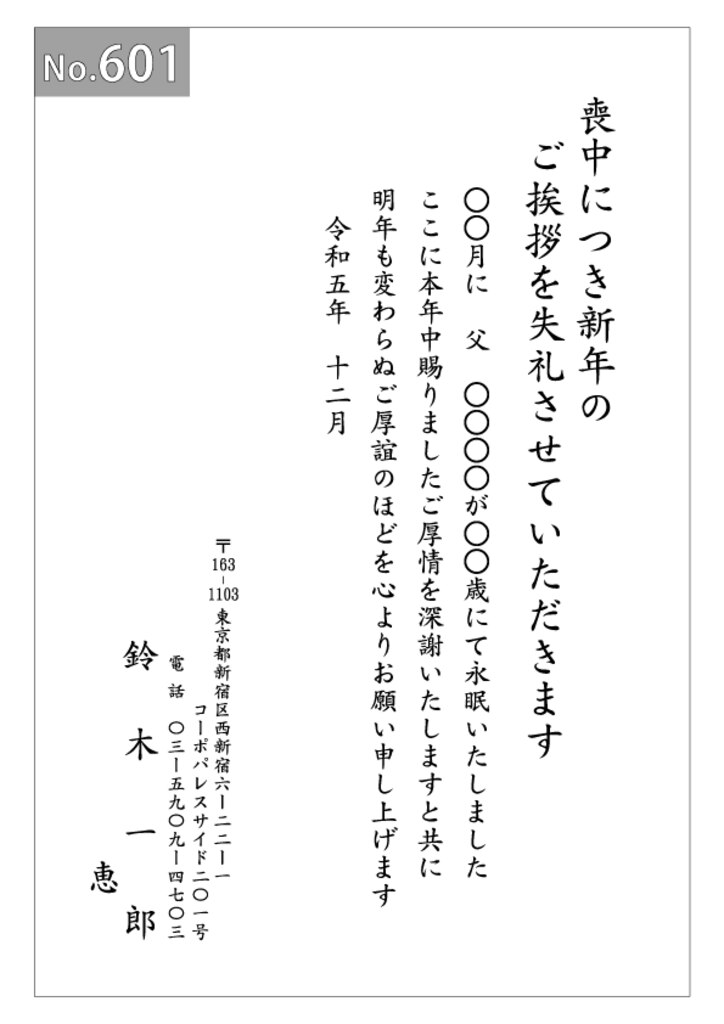 No.601
喪中につき新年の
ご挨拶を失礼させていただきます
〇〇月に　父　〇〇〇〇が〇〇歳にて永眠いたしました
ここに本年中賜りましたご厚情を深謝いたしますと共に
明年も変わらぬご厚誼のほどを心よりお願い申し上げます
令和五年　十二月
〒163-1103 東京都新宿区西新宿六ー二二ー一
コーポパレスサイド二〇一号
電話　〇三ー五九〇九ー四七〇三
鈴木一郎
恵